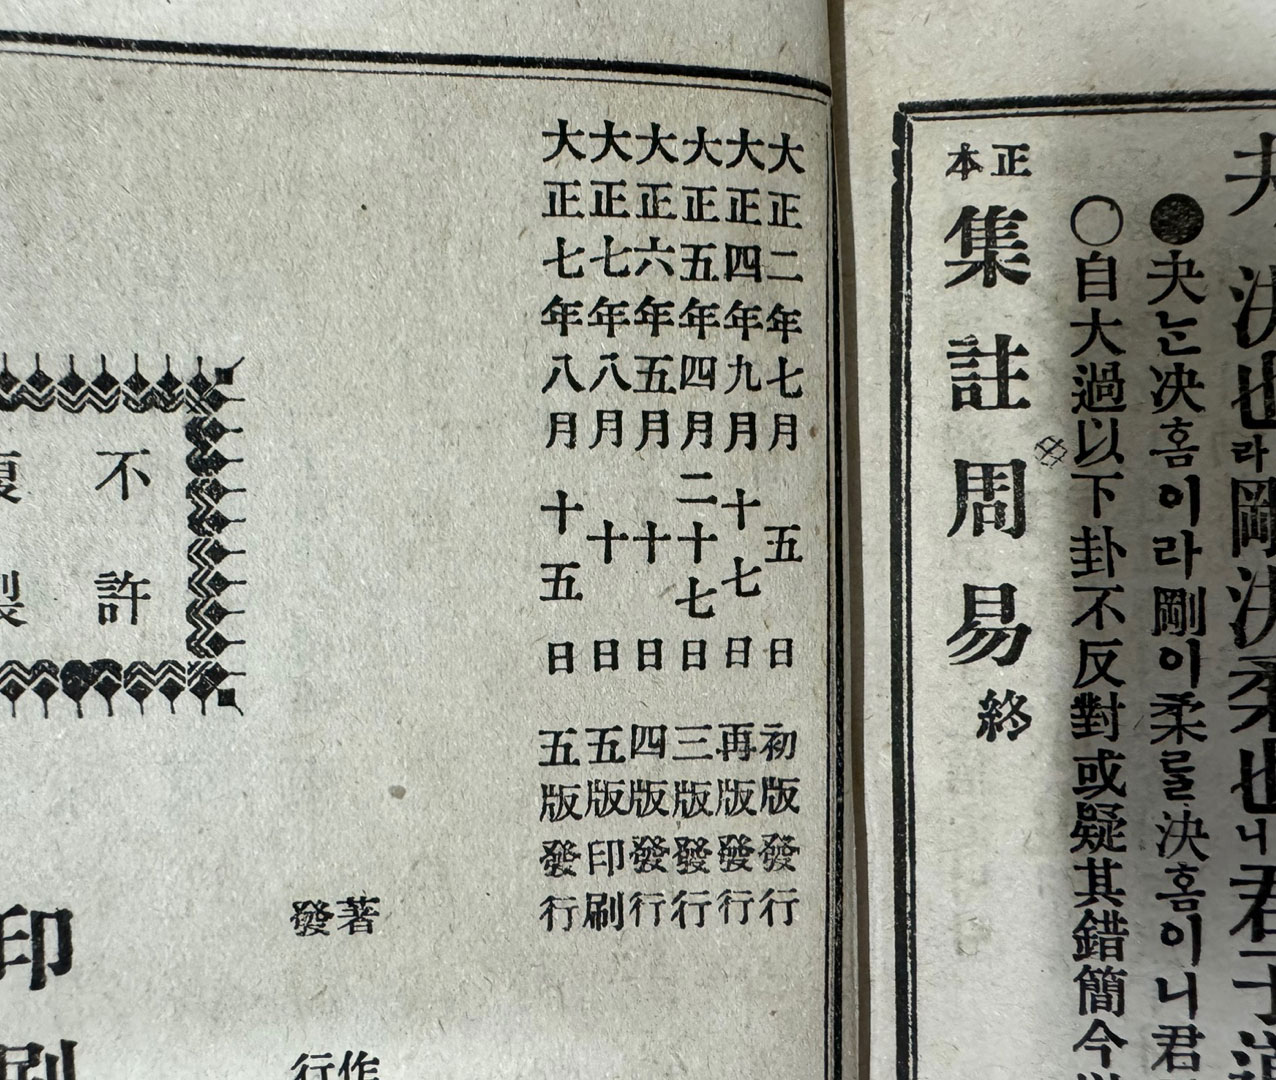 決也라剛決柔也니君子
●夬난决홈이라剛이柔를決홈이니君
○自大過以下卦不反對或疑其錯簡今
正本集註周易終
大正二年七月五日初版發行
大正四年九月十七日再版發行
大正五年四月二十七日三版發行
大正六年五月十日四版發行
大正七年八月十日五版印刷
大正七年八月十五日五版發行
著作
發行
不許
印刷